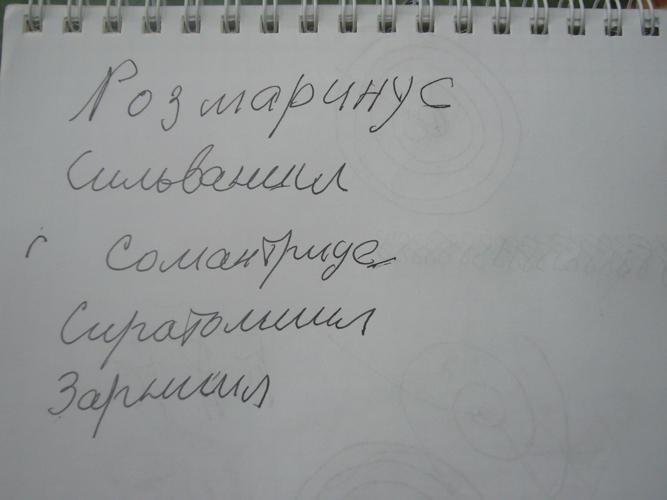 Розмаринус
Сильваниил
Сомантриде
Сиратомиил
Зарниил